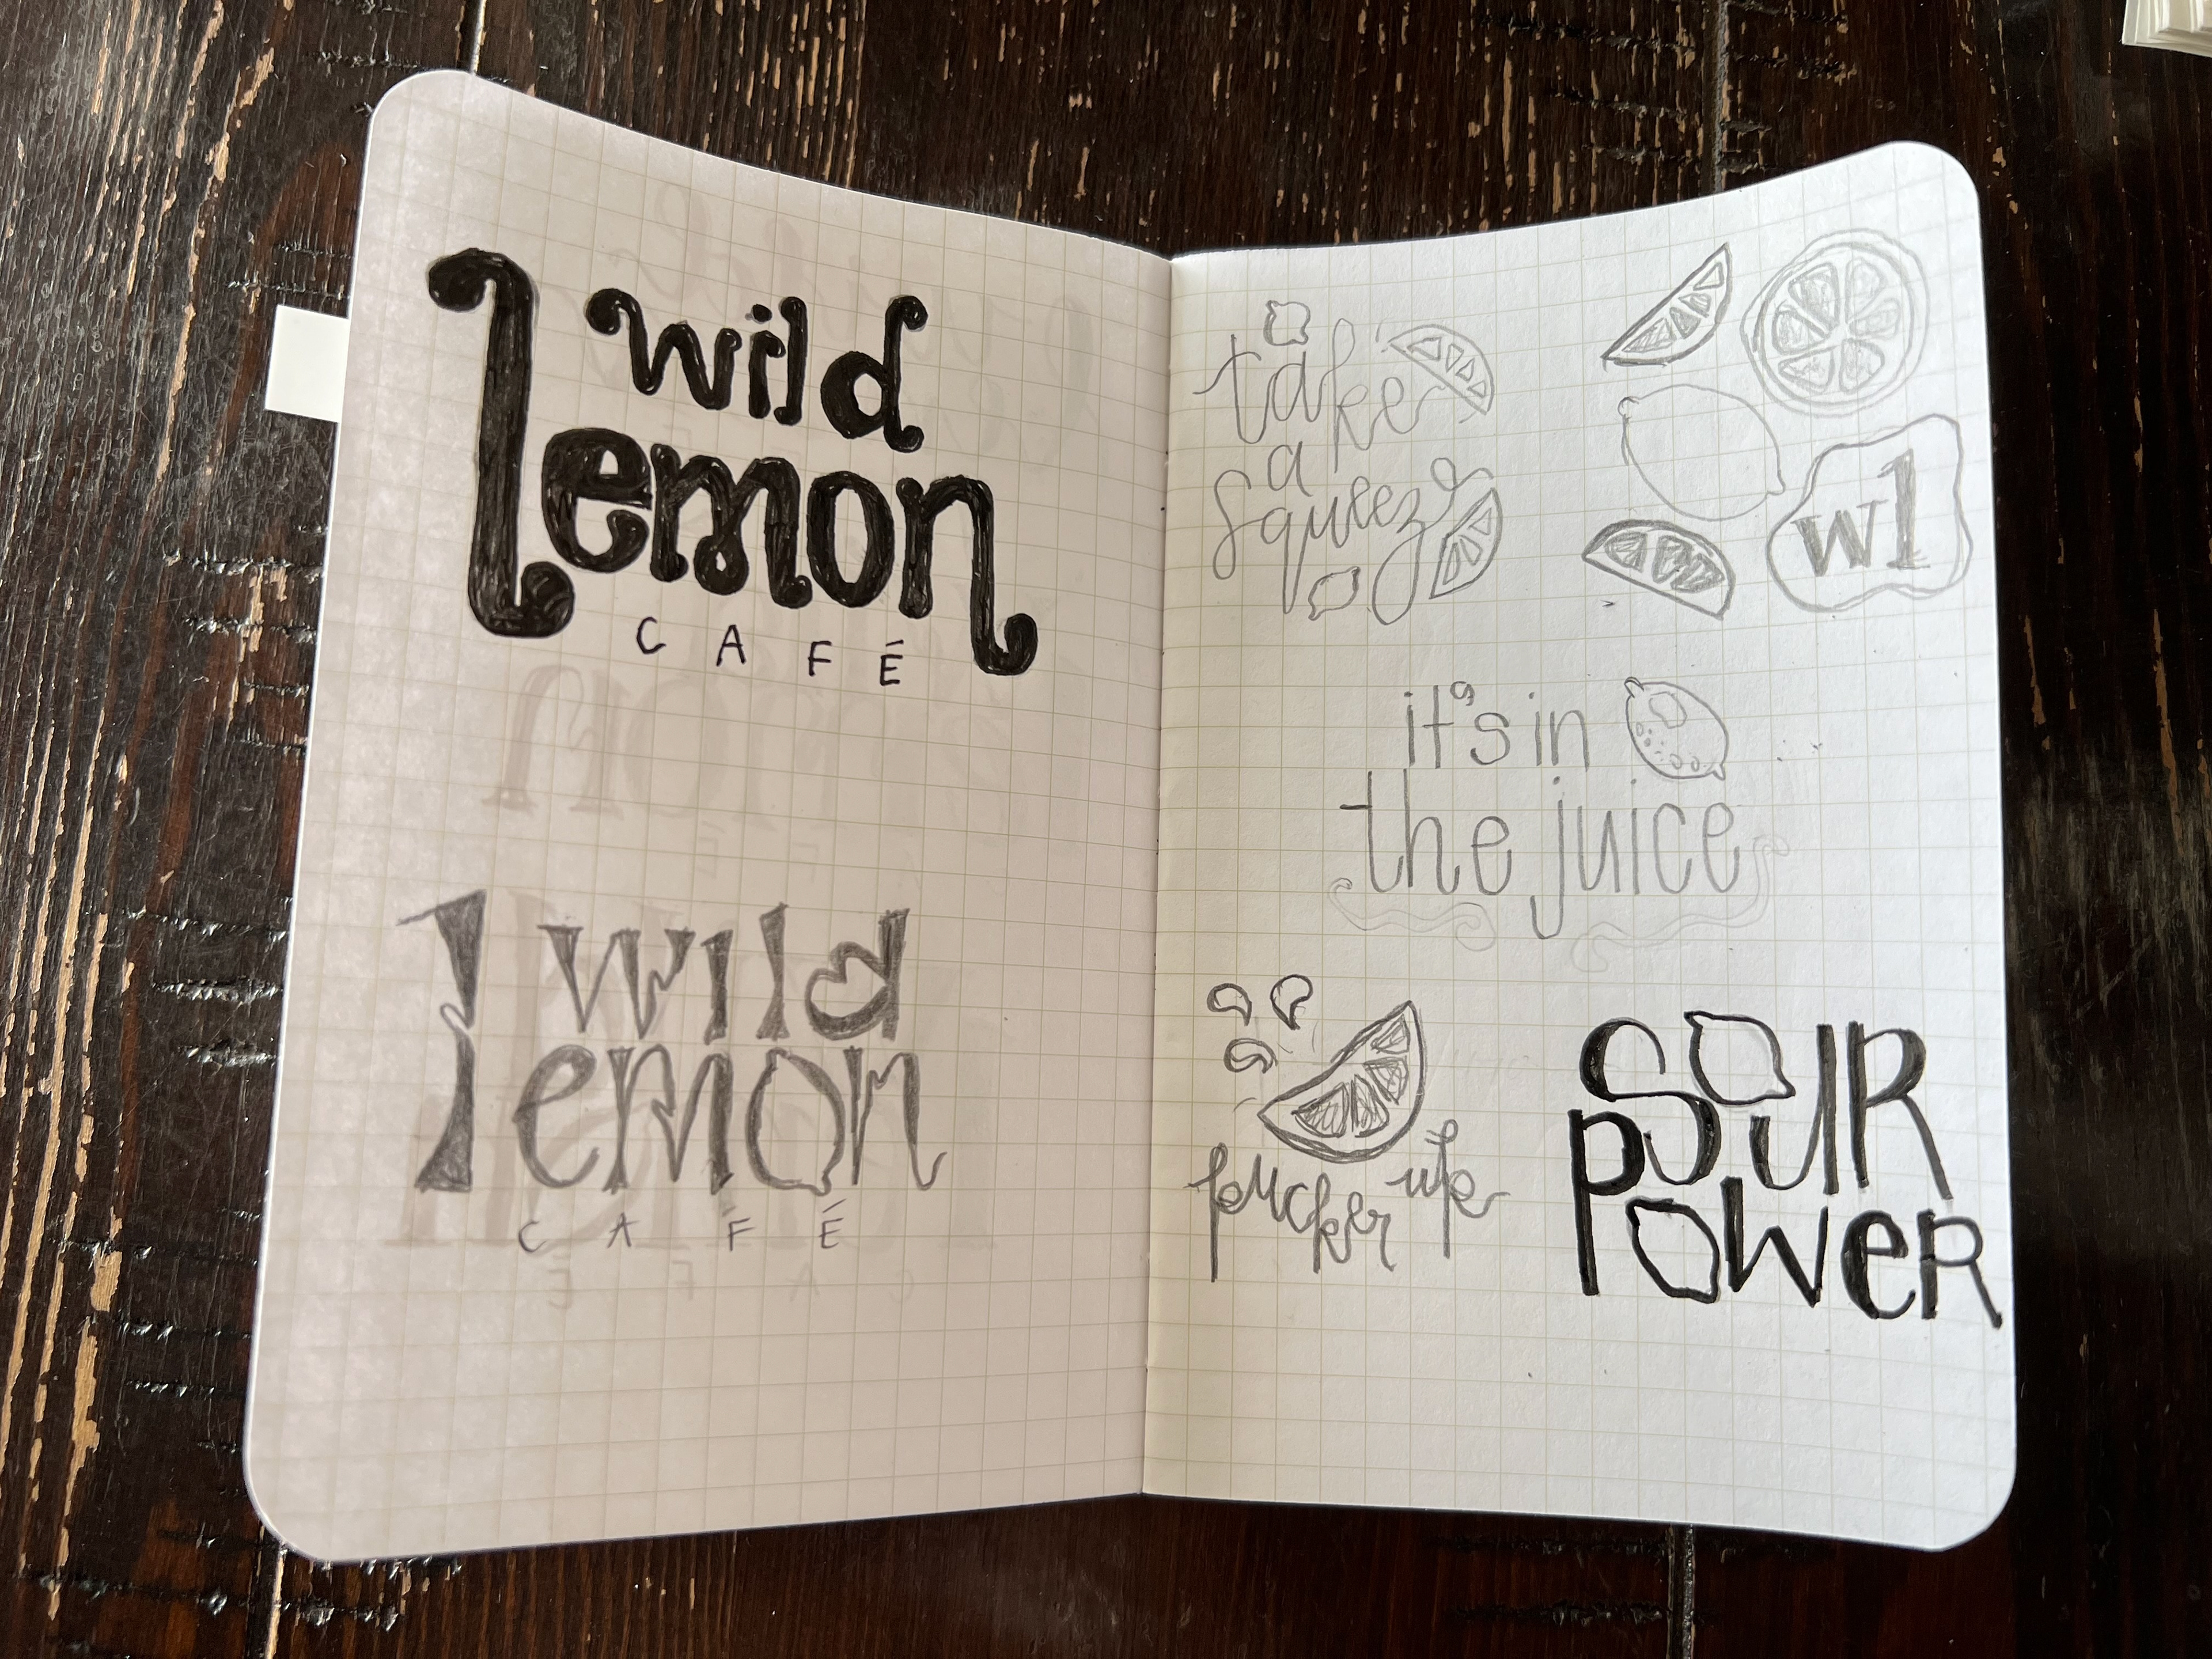 wild
lemon
CAFÉ
wild
lemon
CAFÉ
take
a
squeeze
wl
it's in
the juice
pucker up
SOUR
POWeR